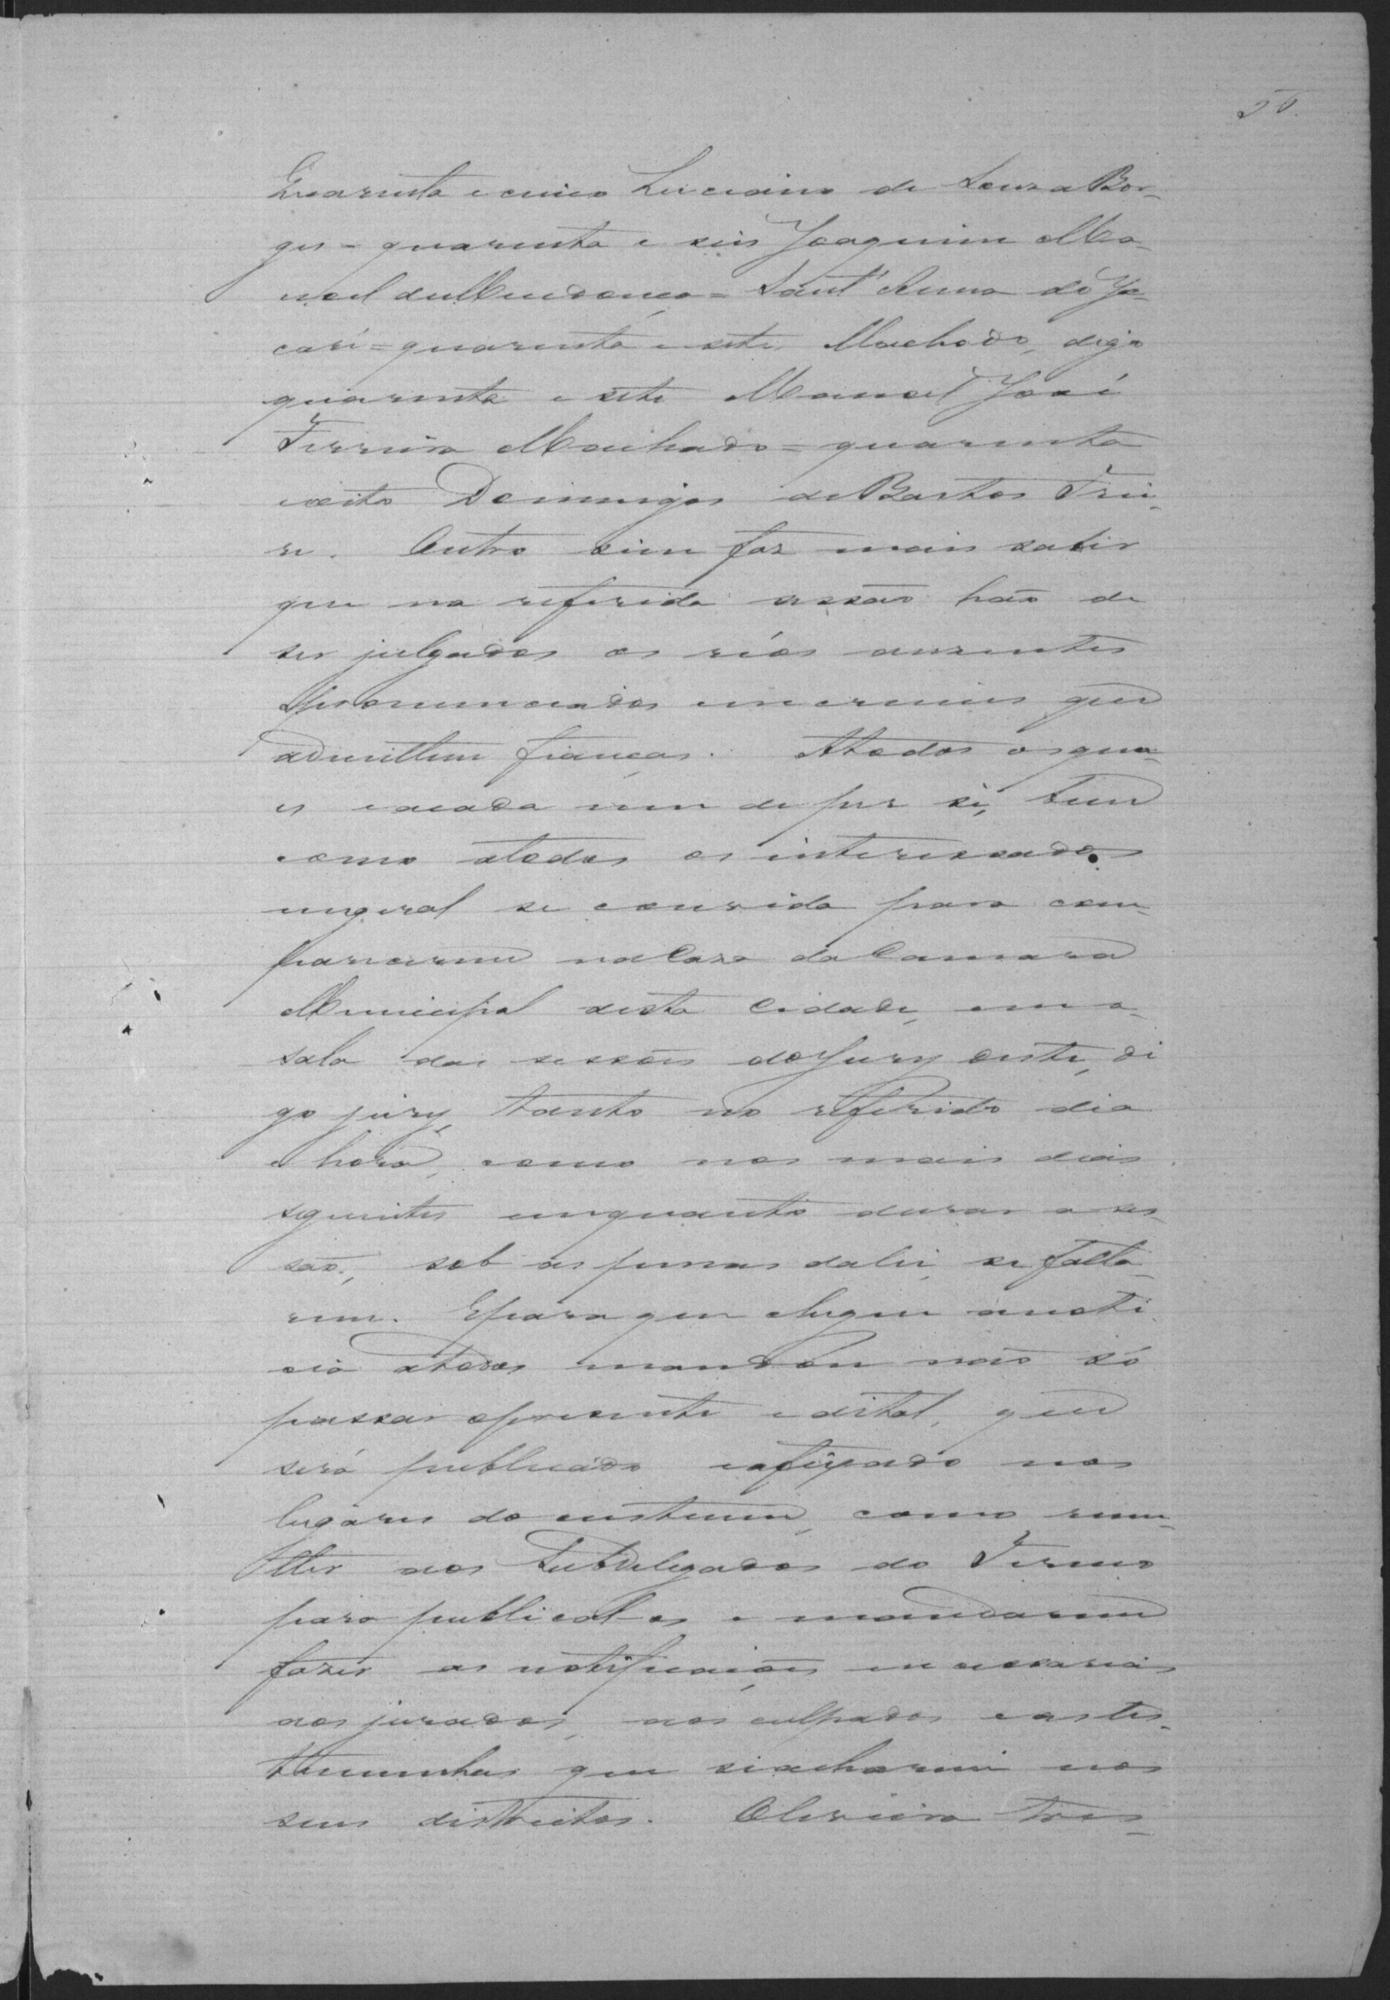 Quarenta e cinco Luciano de Souza Bor-
ges = quarenta e seis Joaquim Ma-
noel de Mendonça = Sant'Anna do Ja-
caré = quarenta e sete Machado, digo
quarenta e sete Manoel José
Ferreira Machado = quarenta
e oito Domingos de Bastos Frei-
re. Outro sim faz mais saber
que na referida sessão hão de
ser julgados os réos ausentes
pronunciados em crimes que
admittem fianças. A todos os qua-
es e a cada um de per si, bem
como a todos os interessados
em geral se convida para com-
parecerem na Casa da Camara
Municipal desta Cidade, em a
sala das sessões do Jury deste, di
go jury, tanto no referido dia
e hora, como nos mais dias
seguintes emquanto durar a ses-
são, sob as penas da lei, se falta-
rem. E para que chegue a noti-
cia a todos mandou não só
passar o presente edital, que
será publicado e afixado nos
lugares do custume, como reme-
tter aos Subdelegados do Termo
para publical-os e mandarem
fazer as notificações necessarias
aos jurados, aos culpados e as tes-
temunhas que se acharem nos
seus districtos. Oliveira tres